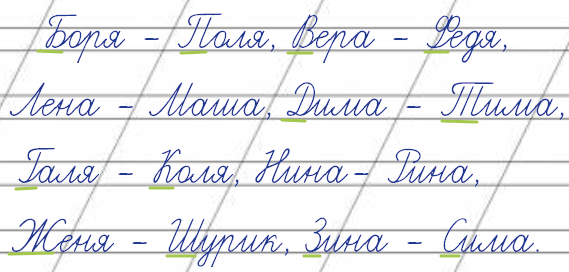 Боря – Поля, Вера – Федя,
Лена – Маша, Дима – Тима,
Галя – Коля, Нина – Рина,
Женя – Шурик, Зина – Сима.